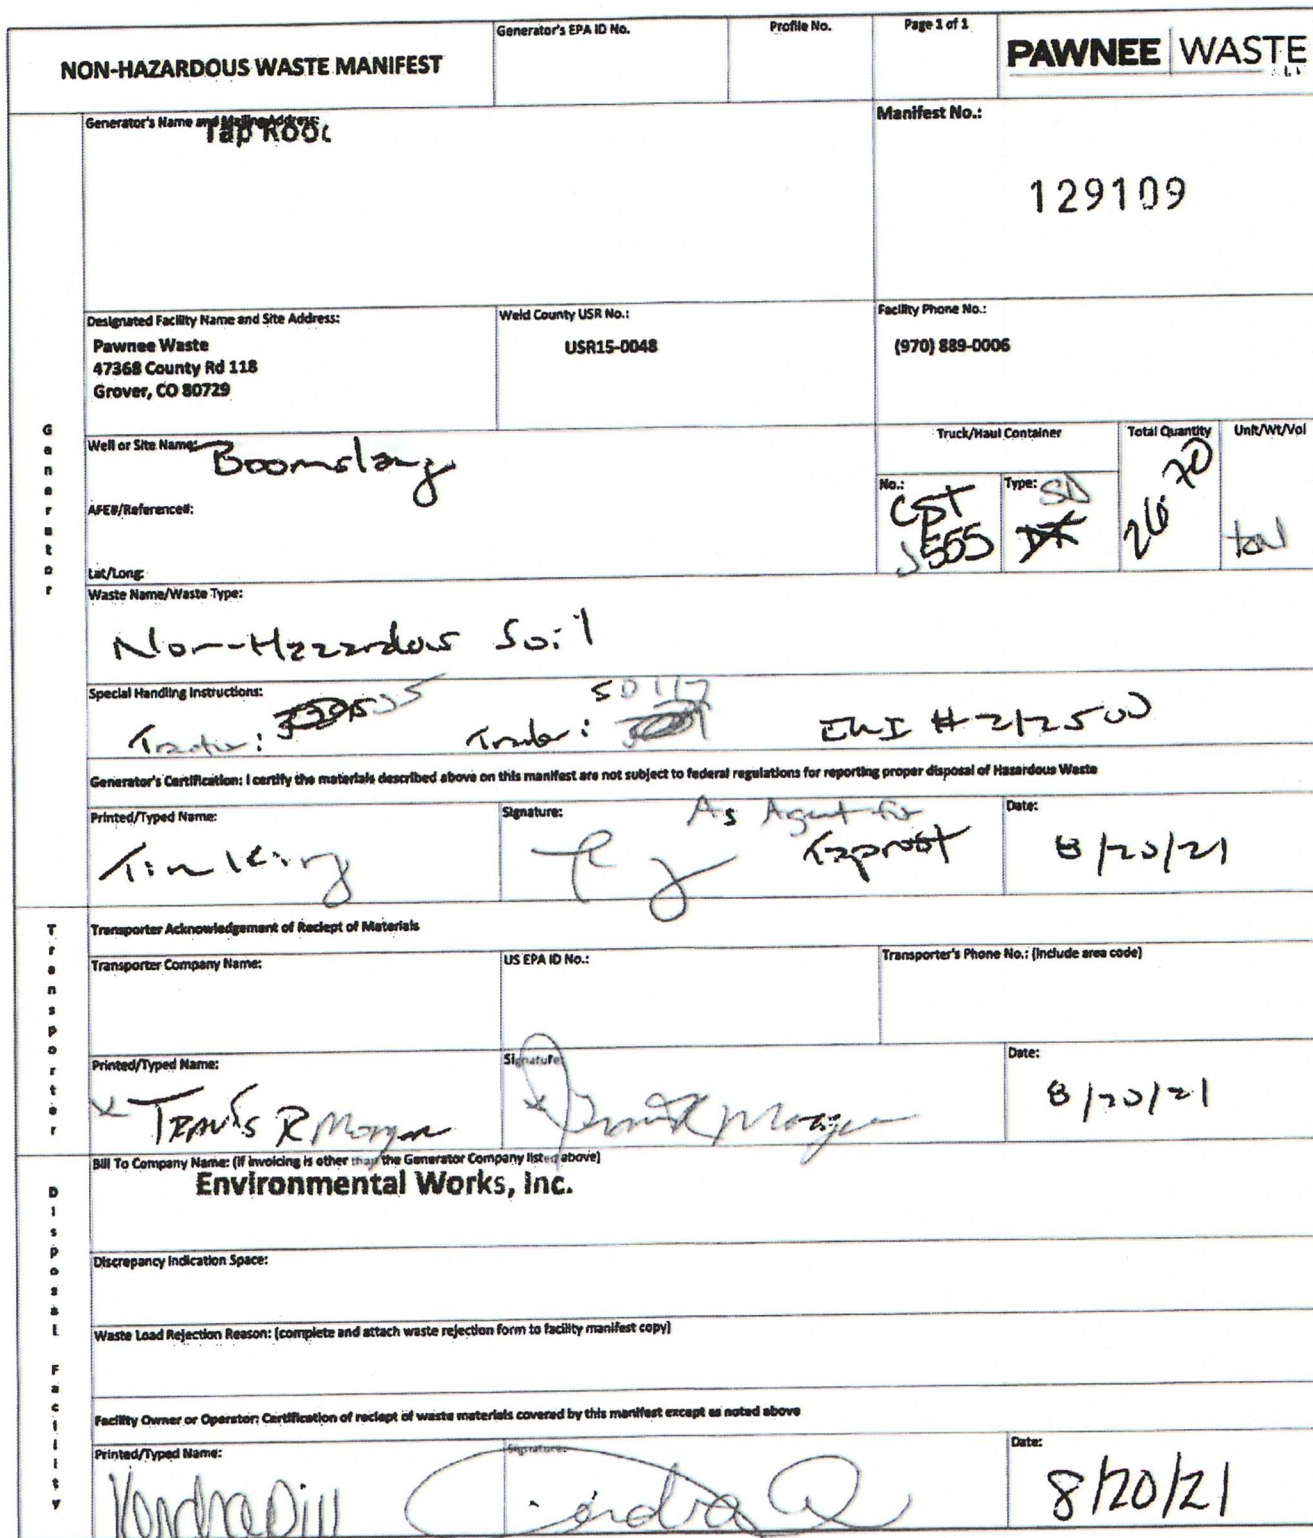 NON-HAZARDOUS WASTE MANIFEST
Generator's EPA ID No.
Profile No.
Page 1 of 1
PAWNEE WASTE
Generator's Name and Mailing Address:
Tap Root
Manifest No.:
129109
Designated Facility Name and Site Address:
Pawnee Waste
47368 County Rd 118
Grover, CO 80729
Weld County USR No.:
USR15-0048
Facility Phone No.:
(970) 889-0006
Generator
Well or Site Name:
Boomslang
AFE#/Reference#:
Lat/Long:
Truck/Haul Container
No.:
CST
J555
Type:
SD
Total Quantity
26.70
Unit/Wt/Vol
ton
Waste Name/Waste Type:
Non-Hazardous Soil
Special Handling Instructions:
Tractor:
Trailer: SD117
EWI #212500
Generator's Certification: I certify the materials described above on this manifest are not subject to federal regulations for reporting proper disposal of Hazardous Waste
Printed/Typed Name:
Tim King
Signature:
As Agent for
Taproot
Date:
8/20/21
Transporter
Transporter Acknowledgement of Reciept of Materials
Transporter Company Name:
US EPA ID No.:
Transporter's Phone No.: (include area code)
Printed/Typed Name:
x TRAVIS R Morgan
Signature:
x Travis R Morgan
Date:
8/20/21
Disposal Facility
Bill To Company Name: (if invoicing is other than the Generator Company listed above)
Environmental Works, Inc.
Discrepancy Indication Space:
Waste Load Rejection Reason: (complete and attach waste rejection form to facility manifest copy)
Facility Owner or Operator: Certification of reciept of waste materials covered by this manifest except as noted above
Printed/Typed Name:
Kendra Dill
Signature:
Date:
8/20/21